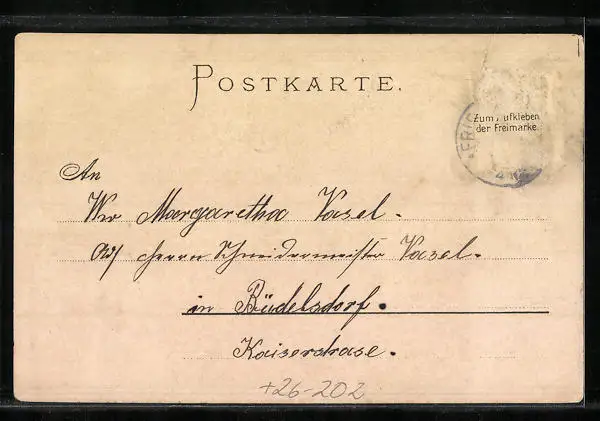 POSTKARTE.
Zum Aufkleben
der Freimarke.
An
Margaretha Vasel.
Herrn Schneidermeister Vasel.
in Büdelsdorf.
Kaiserstrase.
+26-202